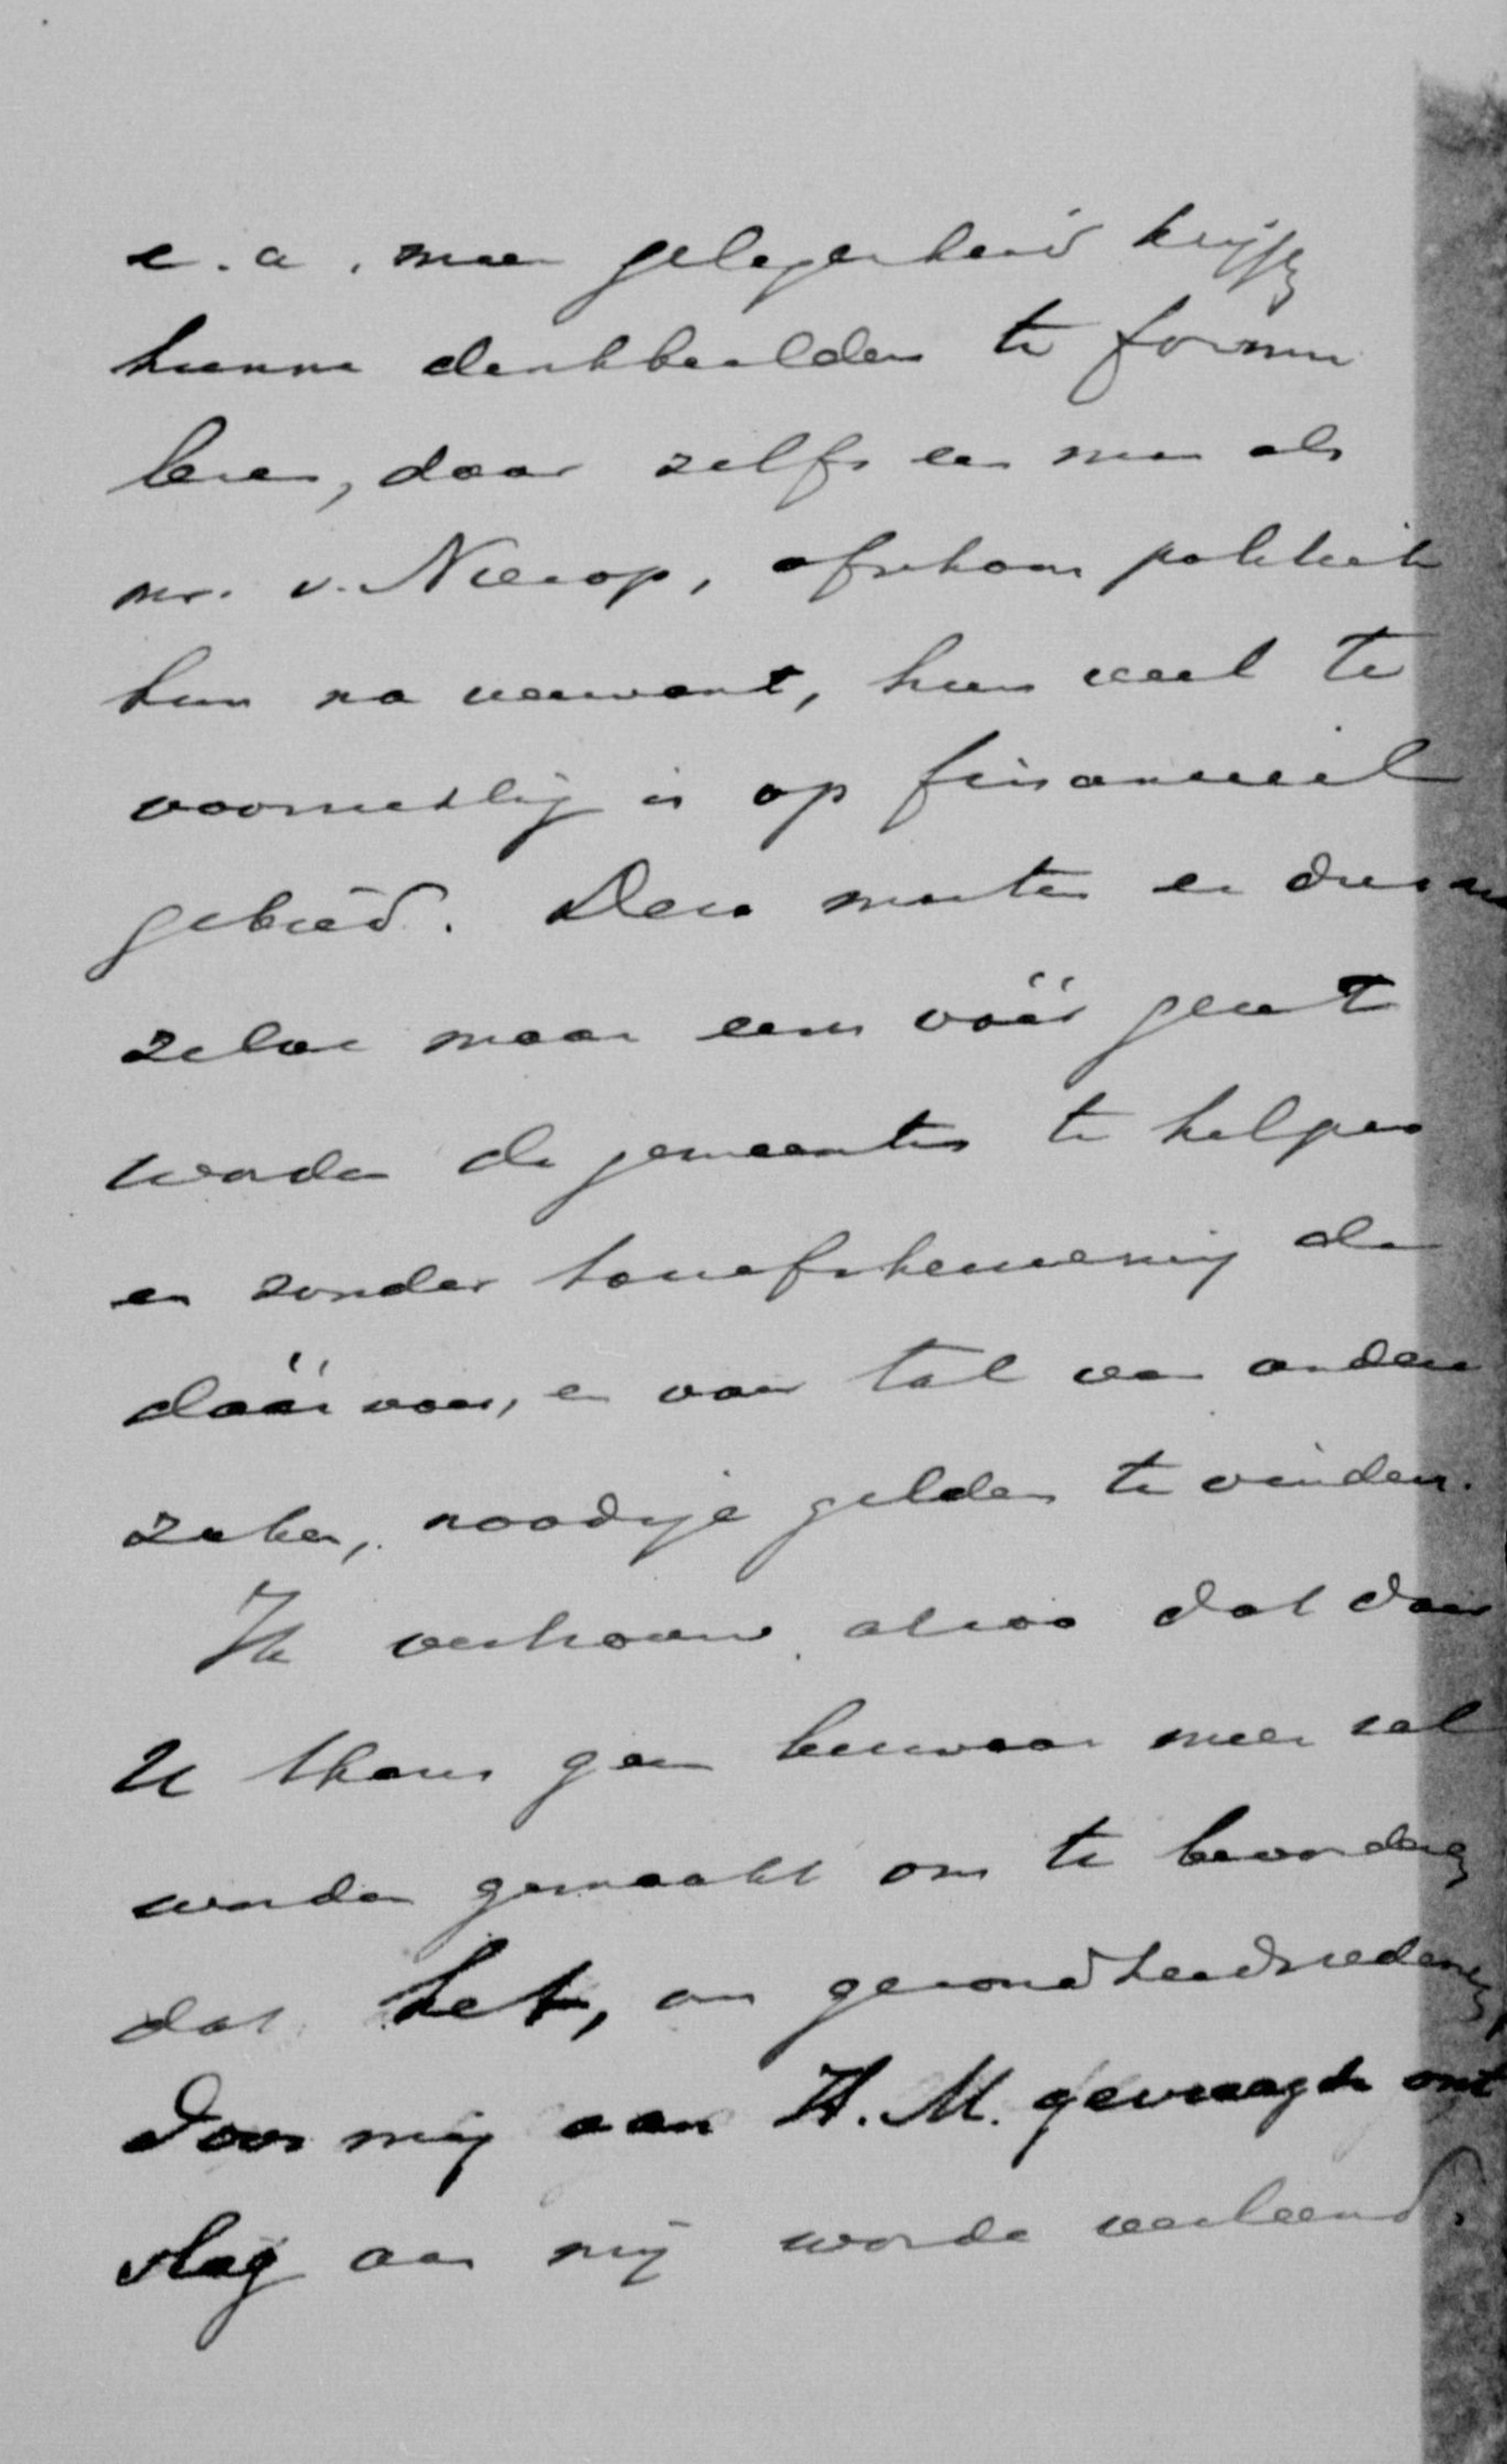 e.a. meer gelegenheid krijgen
hunne denkbeelden te formu
leren, daar zelfs een man als
mr. v. Nierop, ofschoon politiek
hun na verwant, hun veel te
voorzichtig is op financieel
gebied. Dezen moeten er dus
zelve maar eens vóór gezet
worden de gemeente te helpen
en zonder tariefsherziening de
dáárvoor, en voor tal van andere
zaken, noodige gelden te vinden.
Ik vertrouw alzoo dat door
U thans geen bezwaar meer zal
worden gemaakt om te bevorderen
dat het, om gezondheidsredenen,
door mij aan H.M. gevraagde ont
slag aan mij worde verleend.